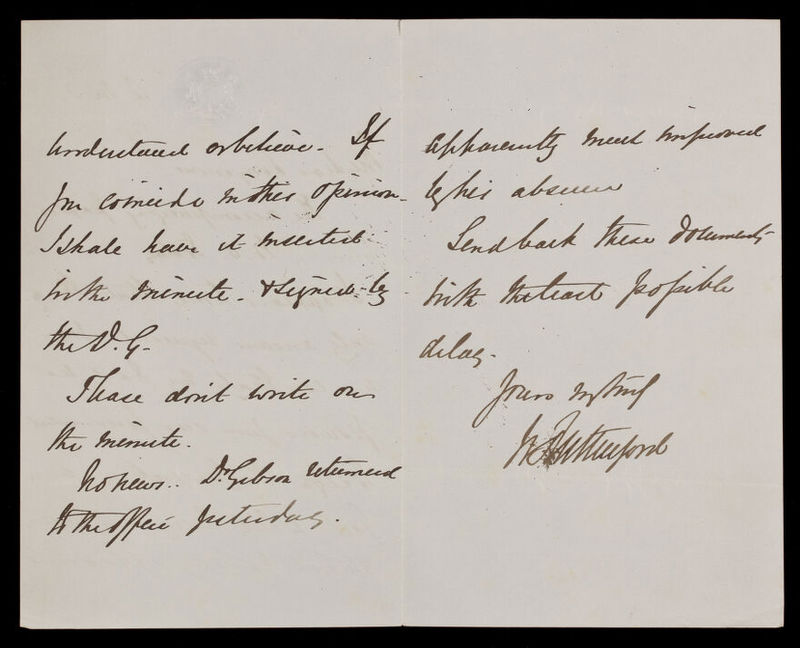 understand or believe. If
you coincide in this opinion
I shall have it inserted
in the minute. & signed by
the D.G.
Please don't write on
the minute.
No news. Dr Gibson returned
to the office yesterday.
apparently much improved
by his absence
Send back these documents
with the least possible
delay.
Yours very truly
W Rutherford